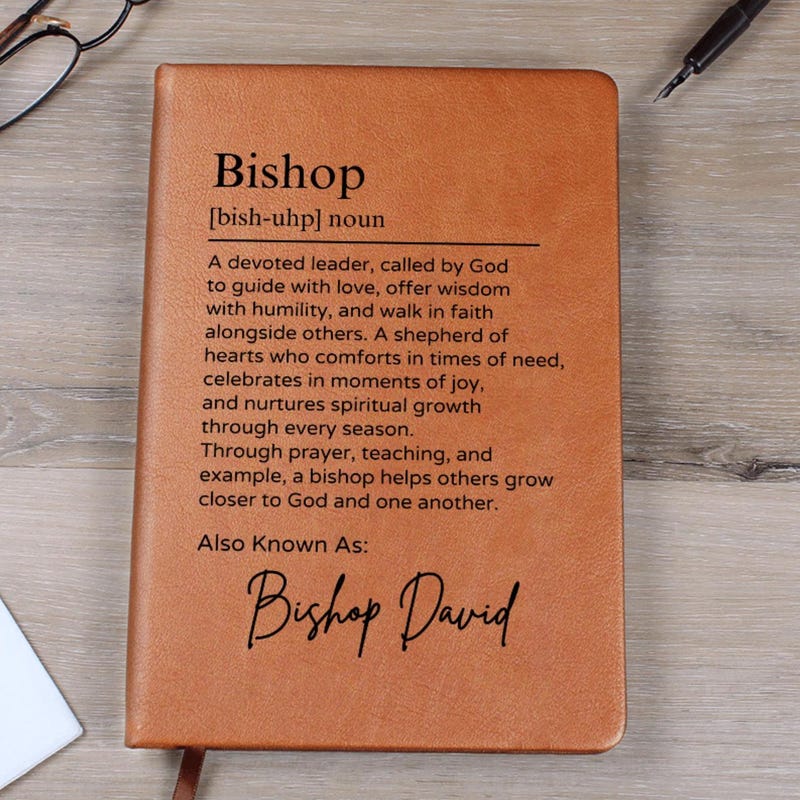 Bishop
[bish-uhp] noun
A devoted leader, called by God
to guide with love, offer wisdom
with humility, and walk in faith
alongside others. A shepherd of
hearts who comforts in times of need,
celebrates in moments of joy,
and nurtures spiritual growth
through every season.
Through prayer, teaching, and
example, a bishop helps others grow
closer to God and one another.
Also Known As:
Bishop David